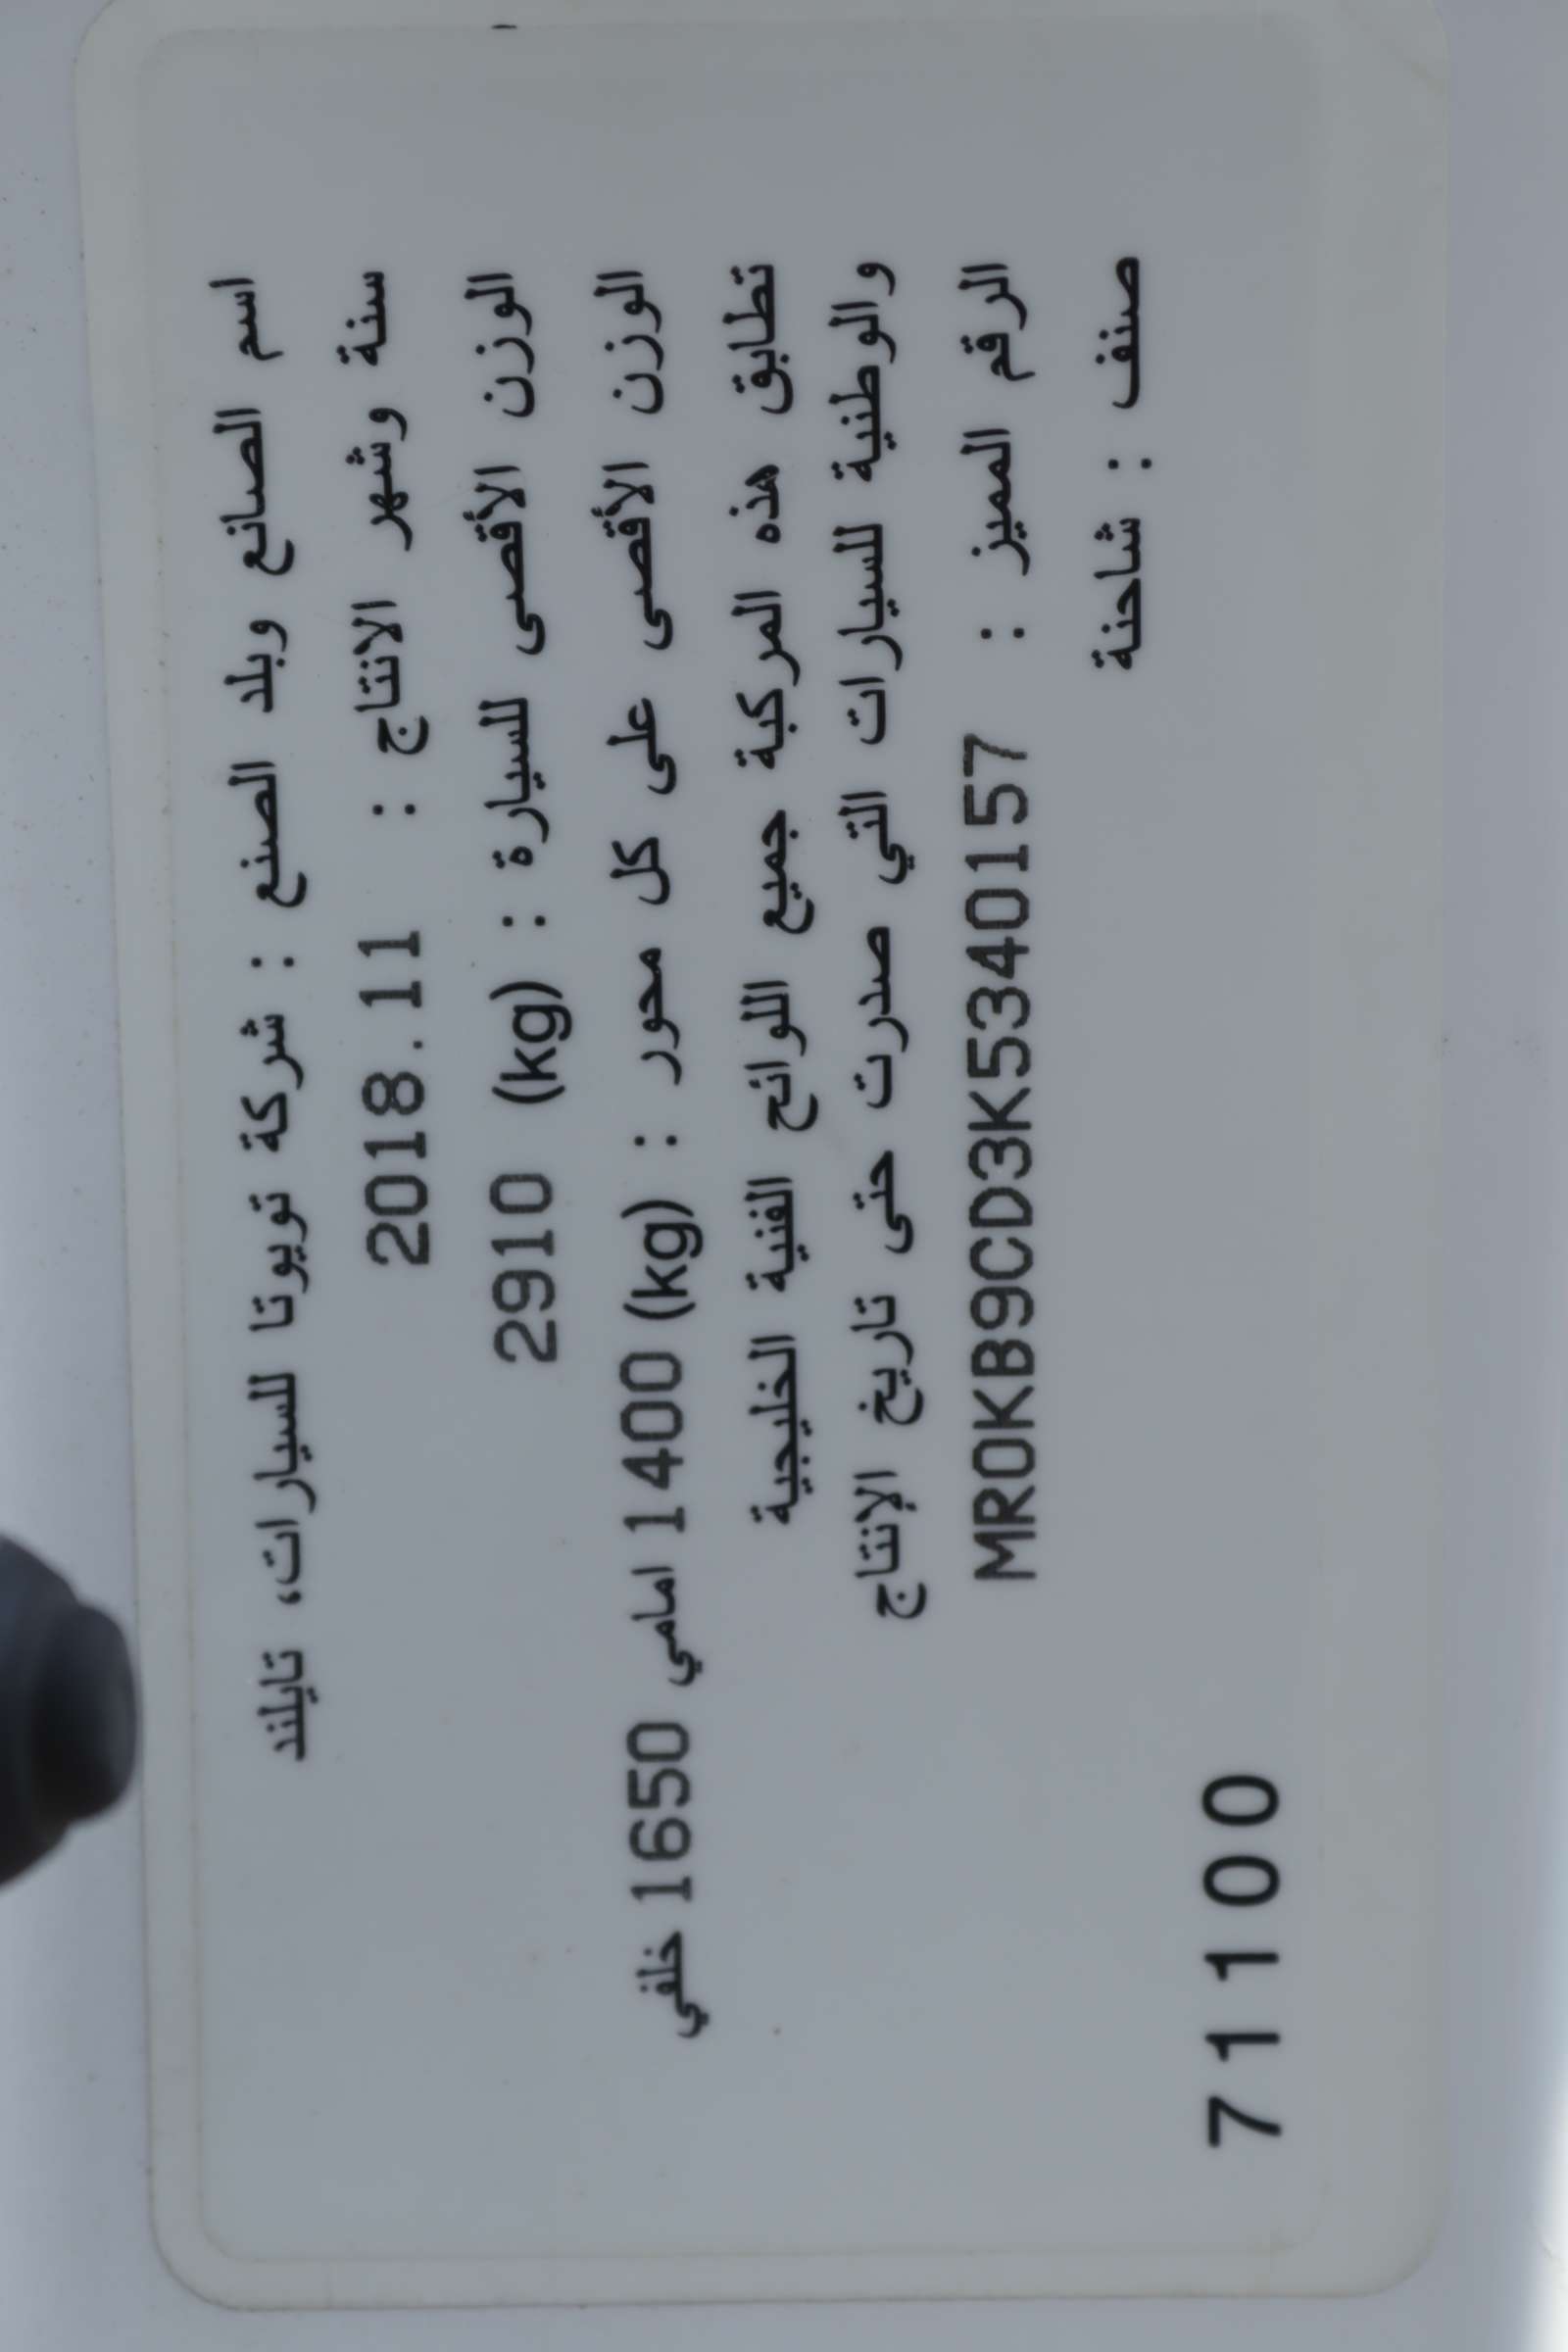 اسم الصانع وبلد الصنع : شركة تويوتا للسيارات، تايلند
سنة وشهر الانتاج : 2018.11
الوزن الأقصى للسيارة : (kg) 2910
الوزن الأقصى على كل محور : (kg) 1400 امامي 1650 خلفي
تطابق هذه المركبة جميع اللوائح الفنية الخليجية
والوطنية للسيارات التي صدرت حتى تاريخ الإنتاج
الرقم المميز : MR0KB9CD3K5340157
صنف : شاحنة
71100